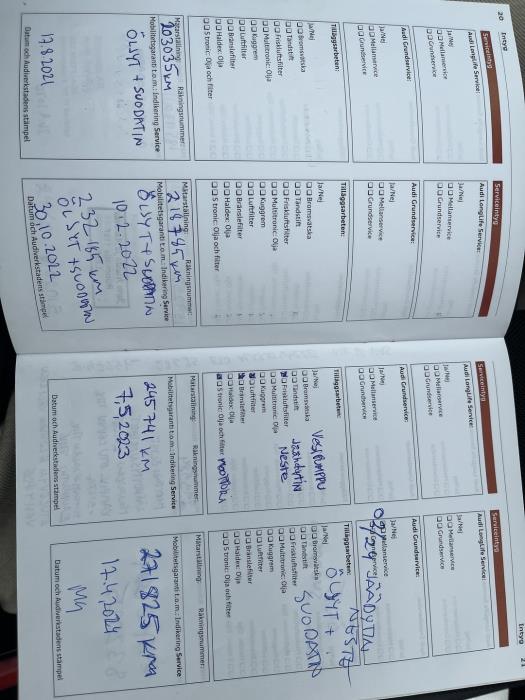 20 Intyg
Serviceintyg
Audi LongLife Service:
Ja/Nej
Mellanservice
Grundservice
Audi Grundservice:
Ja/Nej
Mellanservice
Grundservice
Tilläggsarbeten:
Ja/Nej
Bromsvätska
Tändstift
Friskluftsfilter
Multitronic: Olja
Kuggrem
Luftfilter
Bränslefilter
Haldex: Olja
S tronic: Olja och filter
Mätarställning: Räkningsnummer:
203035 km
Mobilitetsgaranti t.o.m.: Indikering Service
ÖLJYT + SUODATIN
17.8.2021
Datum och Audiverkstadens stämpel
Serviceintyg
Audi LongLife Service:
Ja/Nej
Mellanservice
Grundservice
Audi Grundservice:
Ja/Nej
Mellanservice
Grundservice
Tilläggsarbeten:
Ja/Nej
Bromsvätska
Tändstift
Friskluftsfilter
Multitronic: Olja
Kuggrem
Luftfilter
Bränslefilter
Haldex: Olja
S tronic: Olja och filter
Mätarställning: Räkningsnummer:
218785 km
Mobilitetsgaranti t.o.m.: Indikering Service
ÖLJYT + SUODATIN
10.2.2022
232165 km
ÖLJYT + SUODATIN
30.10.2022
Datum och Audiverkstadens stämpel
Serviceintyg
Audi LongLife Service:
Ja/Nej
Mellanservice
Grundservice
Audi Grundservice:
Ja/Nej
Mellanservice
Grundservice
Tilläggsarbeten:
Ja/Nej
VESIPUMPPU
Bromsvätska
Tändstift
JÄÄHDYTIN
Friskluftsfilter
NESTE
Multitronic: Olja
Kuggrem
Luftfilter
Bränslefilter
Haldex: Olja
S tronic: Olja och filter
Mätarställning: Räkningsnummer:
Mobilitetsgaranti t.o.m.: Indikering Service
245741 km
7.5.2023
Datum och Audiverkstadens stämpel
Intyg 21
Serviceintyg
Audi LongLife Service:
Ja/Nej
Mellanservice
Grundservice
Audi Grundservice:
Ja/Nej
Mellanservice
Grundservice
NESTE
Tilläggsarbeten:
ÖLJYT +
SUODATIN
Ja/Nej
Bromsvätska
Tändstift
Friskluftsfilter
Multitronic: Olja
Kuggrem
Luftfilter
Bränslefilter
Haldex: Olja
S tronic: Olja och filter
Mätarställning: Räkningsnummer:
Mobilitetsgaranti t.o.m.: Indikering Service
271825 km
17.4.2024
Datum och Audiverkstadens stämpel